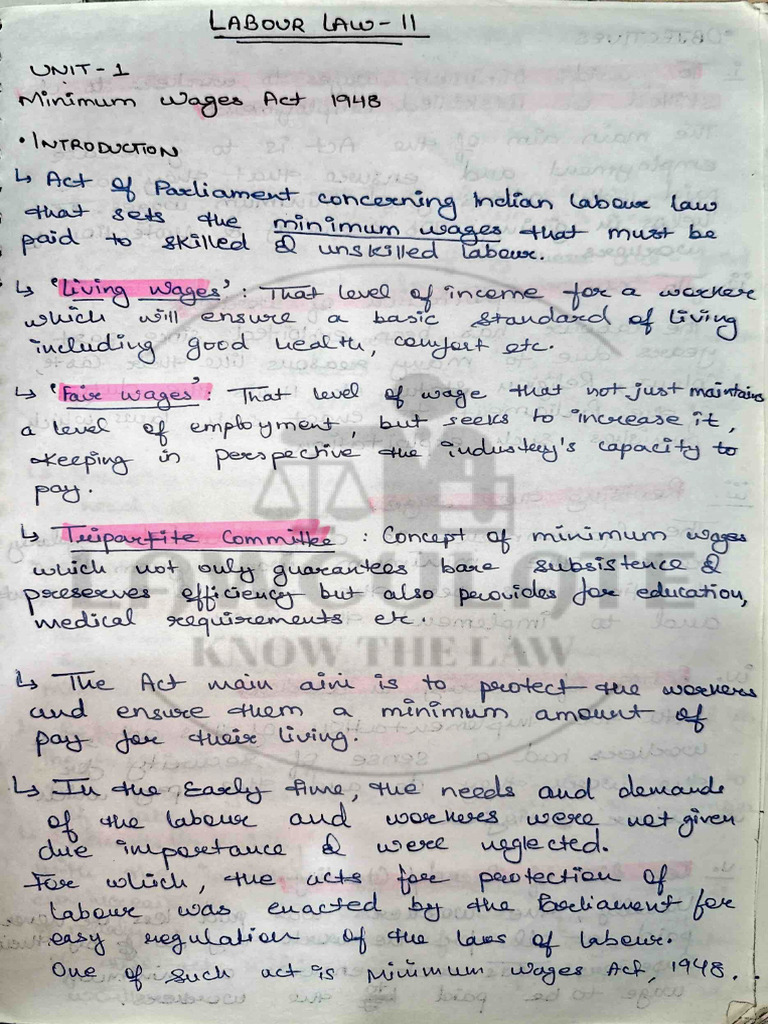 LABOUR LAW-II
UNIT-1
Minimum Wages Act 1948
• INTRODUCTION
↳ Act of Parliament concerning Indian labour law
that sets the minimum wages that must be
paid to skilled & unskilled labour.
↳ 'Living wages': That level of income for a worker
which will ensure a basic standard of living
including good health, comfort etc.
↳ 'Fair wages': That level of wage that not just maintains
a level of employment, but seeks to increase it,
keeping in perspective the industry's capacity to
pay.
↳ Tripartite Committee : Concept of minimum wages
which not only guarantees bare subsistence &
preserves efficiency but also provides for education,
medical requirements etc.
LAWCULATE
KNOW THE LAW
↳ The Act main aim is to protect the workers
and ensure them a minimum amount of
pay for their living.
↳ In the Early time, the needs and demands
of the labour and workers were not given
due importance & were neglected.
For which, the acts for protection of
labour was enacted by the Parliament for
easy regulation of the laws of labour.
One of such act is Minimum Wages Act, 1948.